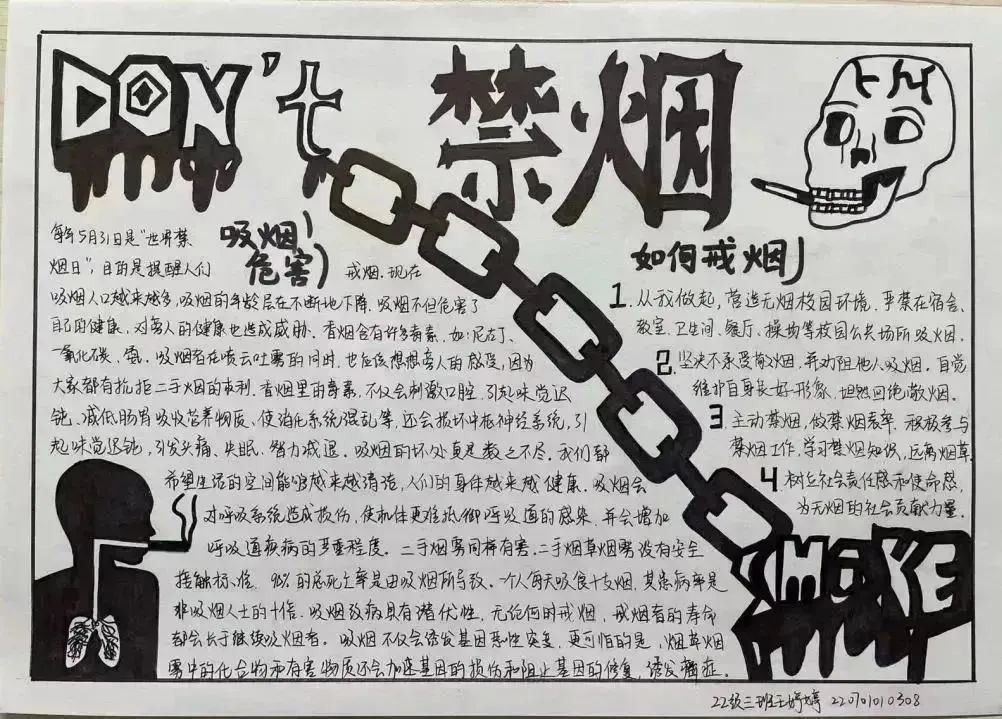 DON't
禁烟
吸烟危害
每年5月31日是"世界禁
烟日",目的是提醒人们 戒烟.现在
吸烟人口越来越多,吸烟的年龄层在不断地下降.吸烟不但危害了
自己的健康,对旁人的健康也造成威胁.香烟含有许多毒素,如:尼古丁、
一氧化碳、氰.吸烟者在喷云吐雾的同时,也应该想想旁人的感受,因为
大家都有抗拒二手烟的权利.香烟里的毒素,不仅会刺激口腔,引起味觉迟
钝、减低肠胃吸收营养物质、使消化系统混乱等,还会损坏中枢神经系统,引
起味觉迟钝,引发头痛、失眠、智力减退.吸烟的坏处真是数之不尽,我们都
希望生活的空间能够越来越清洁,人们的身体越来越健康.吸烟会
对呼吸系统造成损伤,使机体更难抵御呼吸道的感染,并会增加
呼吸道疾病的严重程度.二手烟雾同样有害,二手烟草烟雾没有安全
接触标准.90%的总死亡率是由吸烟所导致.一个人每天吸食十支烟,其患病率是
非吸烟人士的十倍.吸烟致病具有潜伏性,无论何时戒烟,戒烟者的寿命
都会长于继续吸烟者.吸烟不仅会诱发基因恶性突变,更可怕的是,烟草烟
雾中的化合物和有害物质还会加速基因的损伤和阻止基因的修复,诱发癌症.
如何戒烟
1.从我做起,营造无烟校园环境.严禁在宿舍、
教室、卫生间、餐厅、操场等校园公共场所吸烟.
2.坚决不承受敬烟,并劝阻他人吸烟.自觉
维护自身良好形象,坦然回绝敬烟.
3.主动禁烟,做禁烟表率.积极参与
禁烟工作,学习禁烟知识,远离烟草.
4.树立社会责任感和使命感,
为无烟的社会贡献力量.
SMOKE
22级三班王婷婷 220701010308